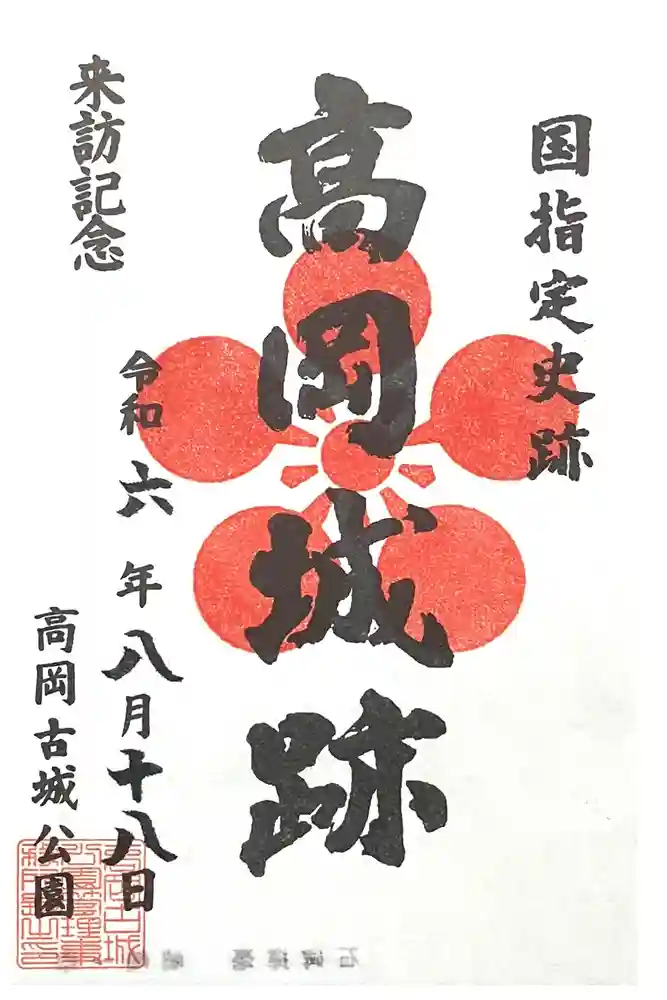 国指定史跡
高岡城跡
来訪記念
令和六年八月十八日
高岡古城公園